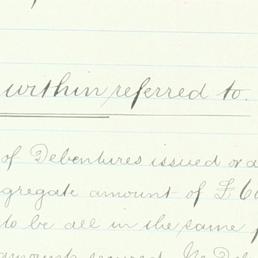 within referred to.
of Debentures issued or a
gregate amount of £60
to be all in the same
amount